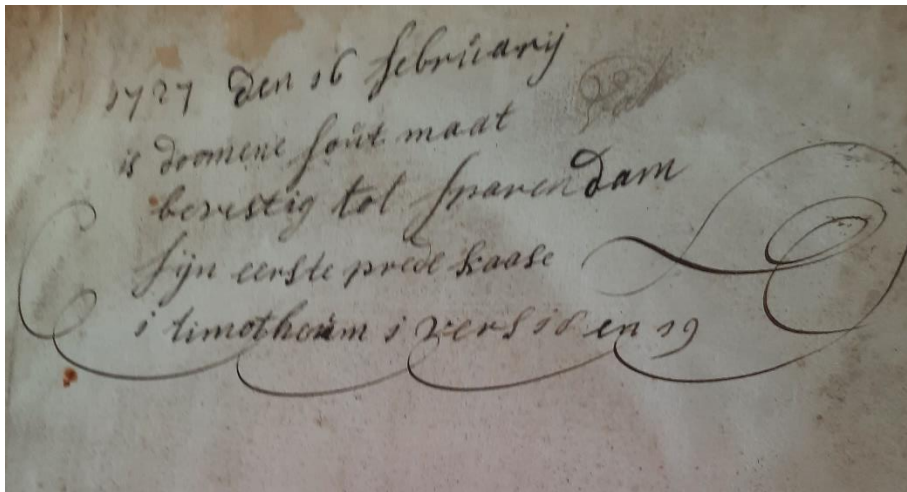 1727 den 16 februarij
is domene sout maat
bevestig tot sparendam
sijn eerste prede kaase
i timotheum i vers 18 en 19